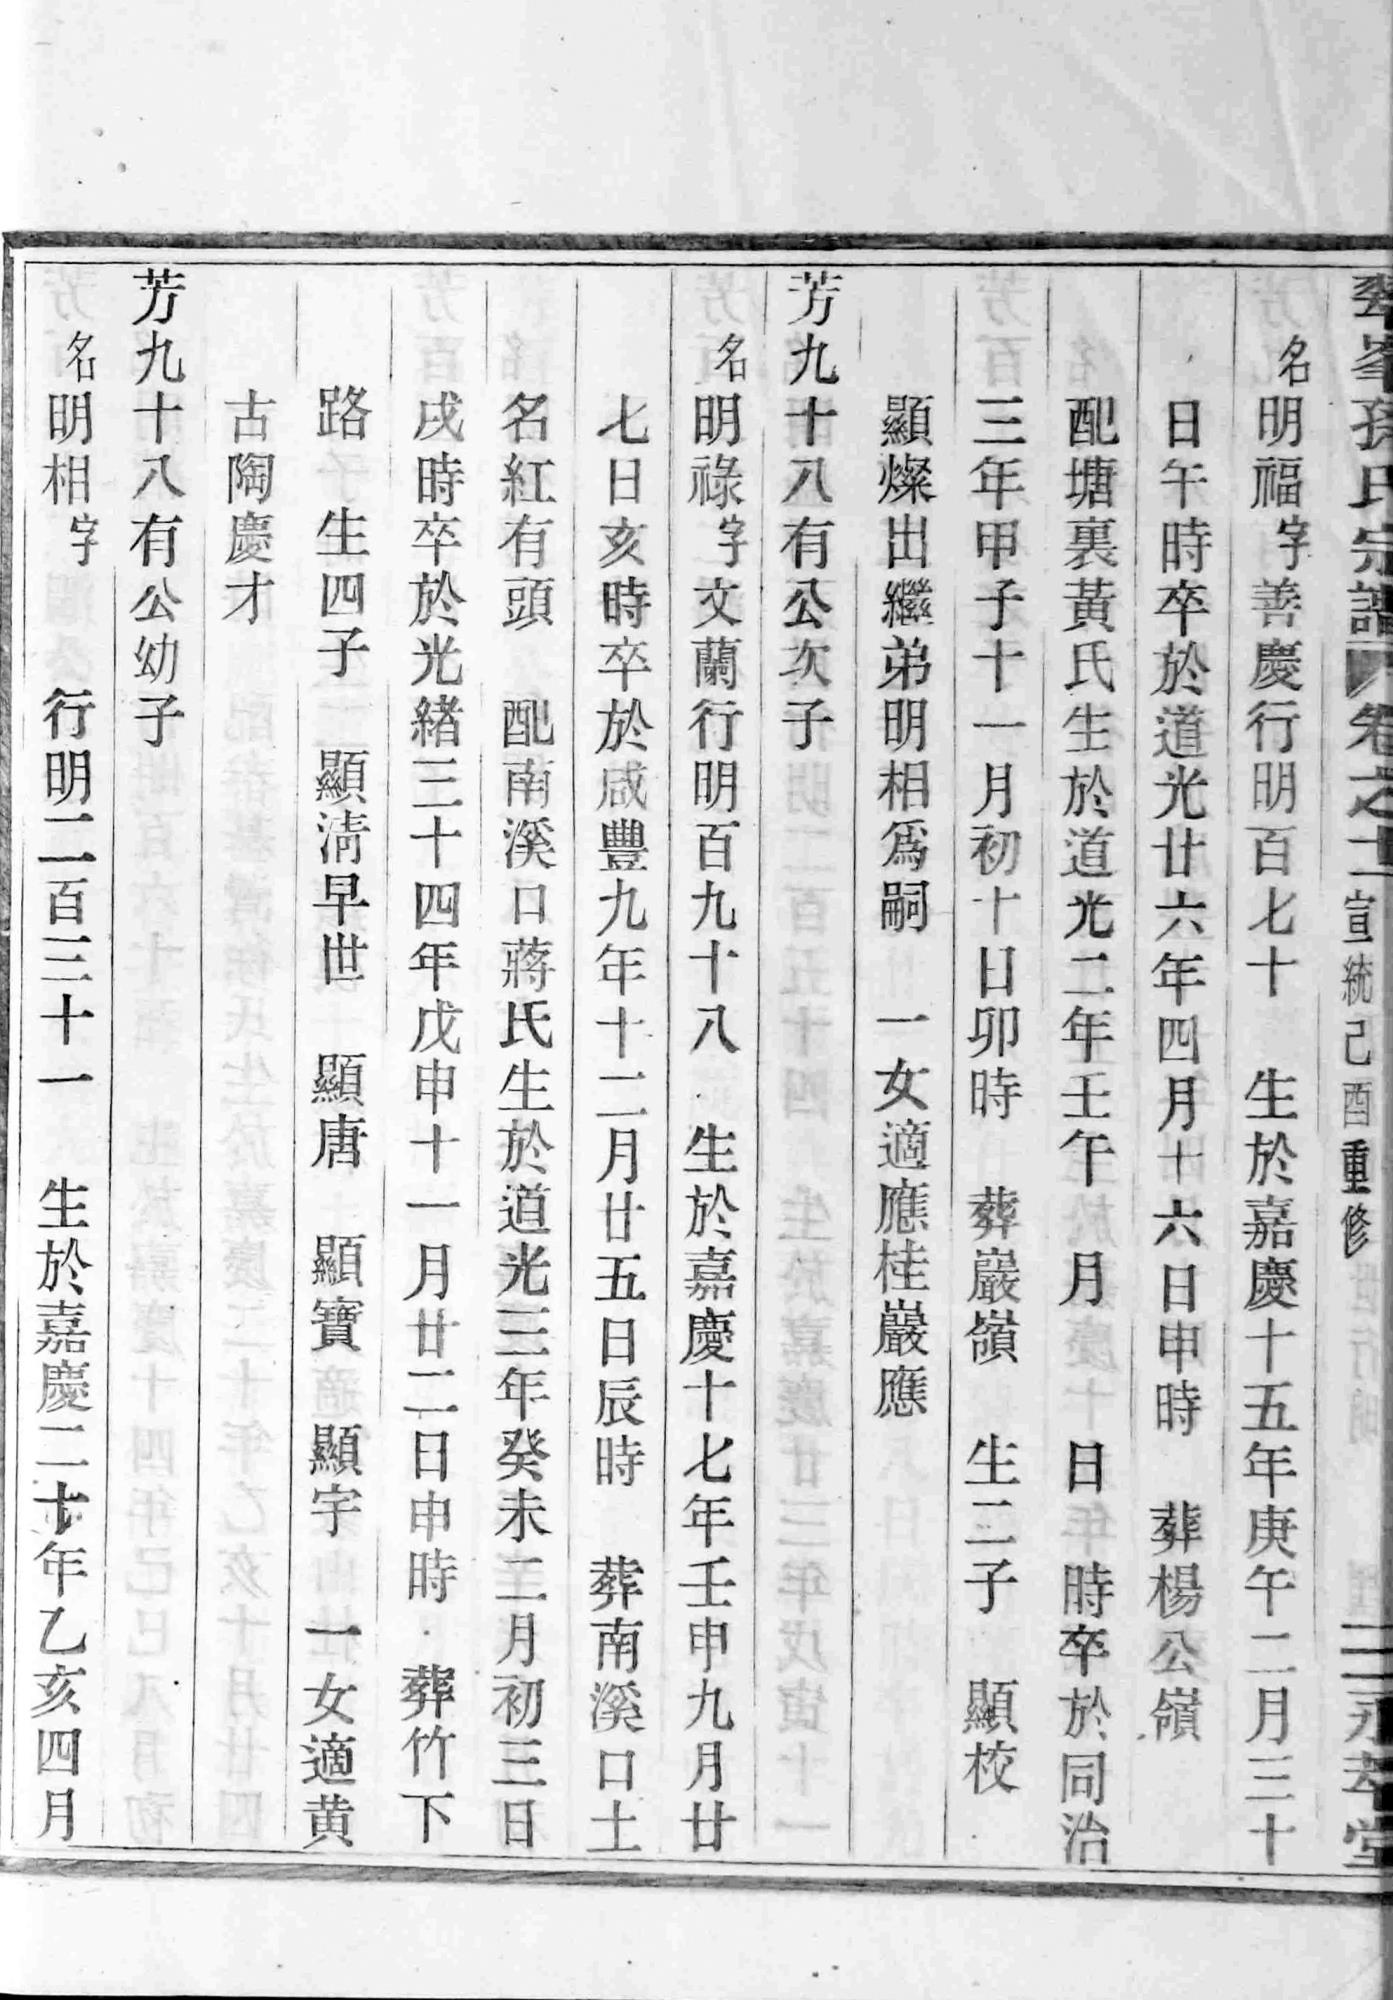 孫氏宗譜 卷之十一 宣統己酉重修
名明福字善慶行明百七十 生於嘉慶十五年庚午二月三十
日午時卒於道光廿六年四月十六日申時 葬楊公嶺
配塘裏黃氏生於道光二年壬午 月 日 時卒於同治
三年甲子十一月初十日卯時 葬嚴嶺 生二子 顯校
顯燦出繼弟明相爲嗣 一女適應桂巖應
芳九十八有公次子
名明祿字文蘭行明百九十八 生於嘉慶十七年壬申九月廿
七日亥時卒於咸豐九年十二月廿五日辰時 葬南溪口土
名紅有頭 配南溪口蔣氏生於道光三年癸未二月初三日
戌時卒於光緒三十四年戊申十一月廿二日申時 葬竹下
路 生四子 顯淸早世 顯唐 顯寶 顯宇 一女適黄
古陶慶才
芳九十八有公幼子
名明相字 行明二百三十一 生於嘉慶二十年乙亥四月